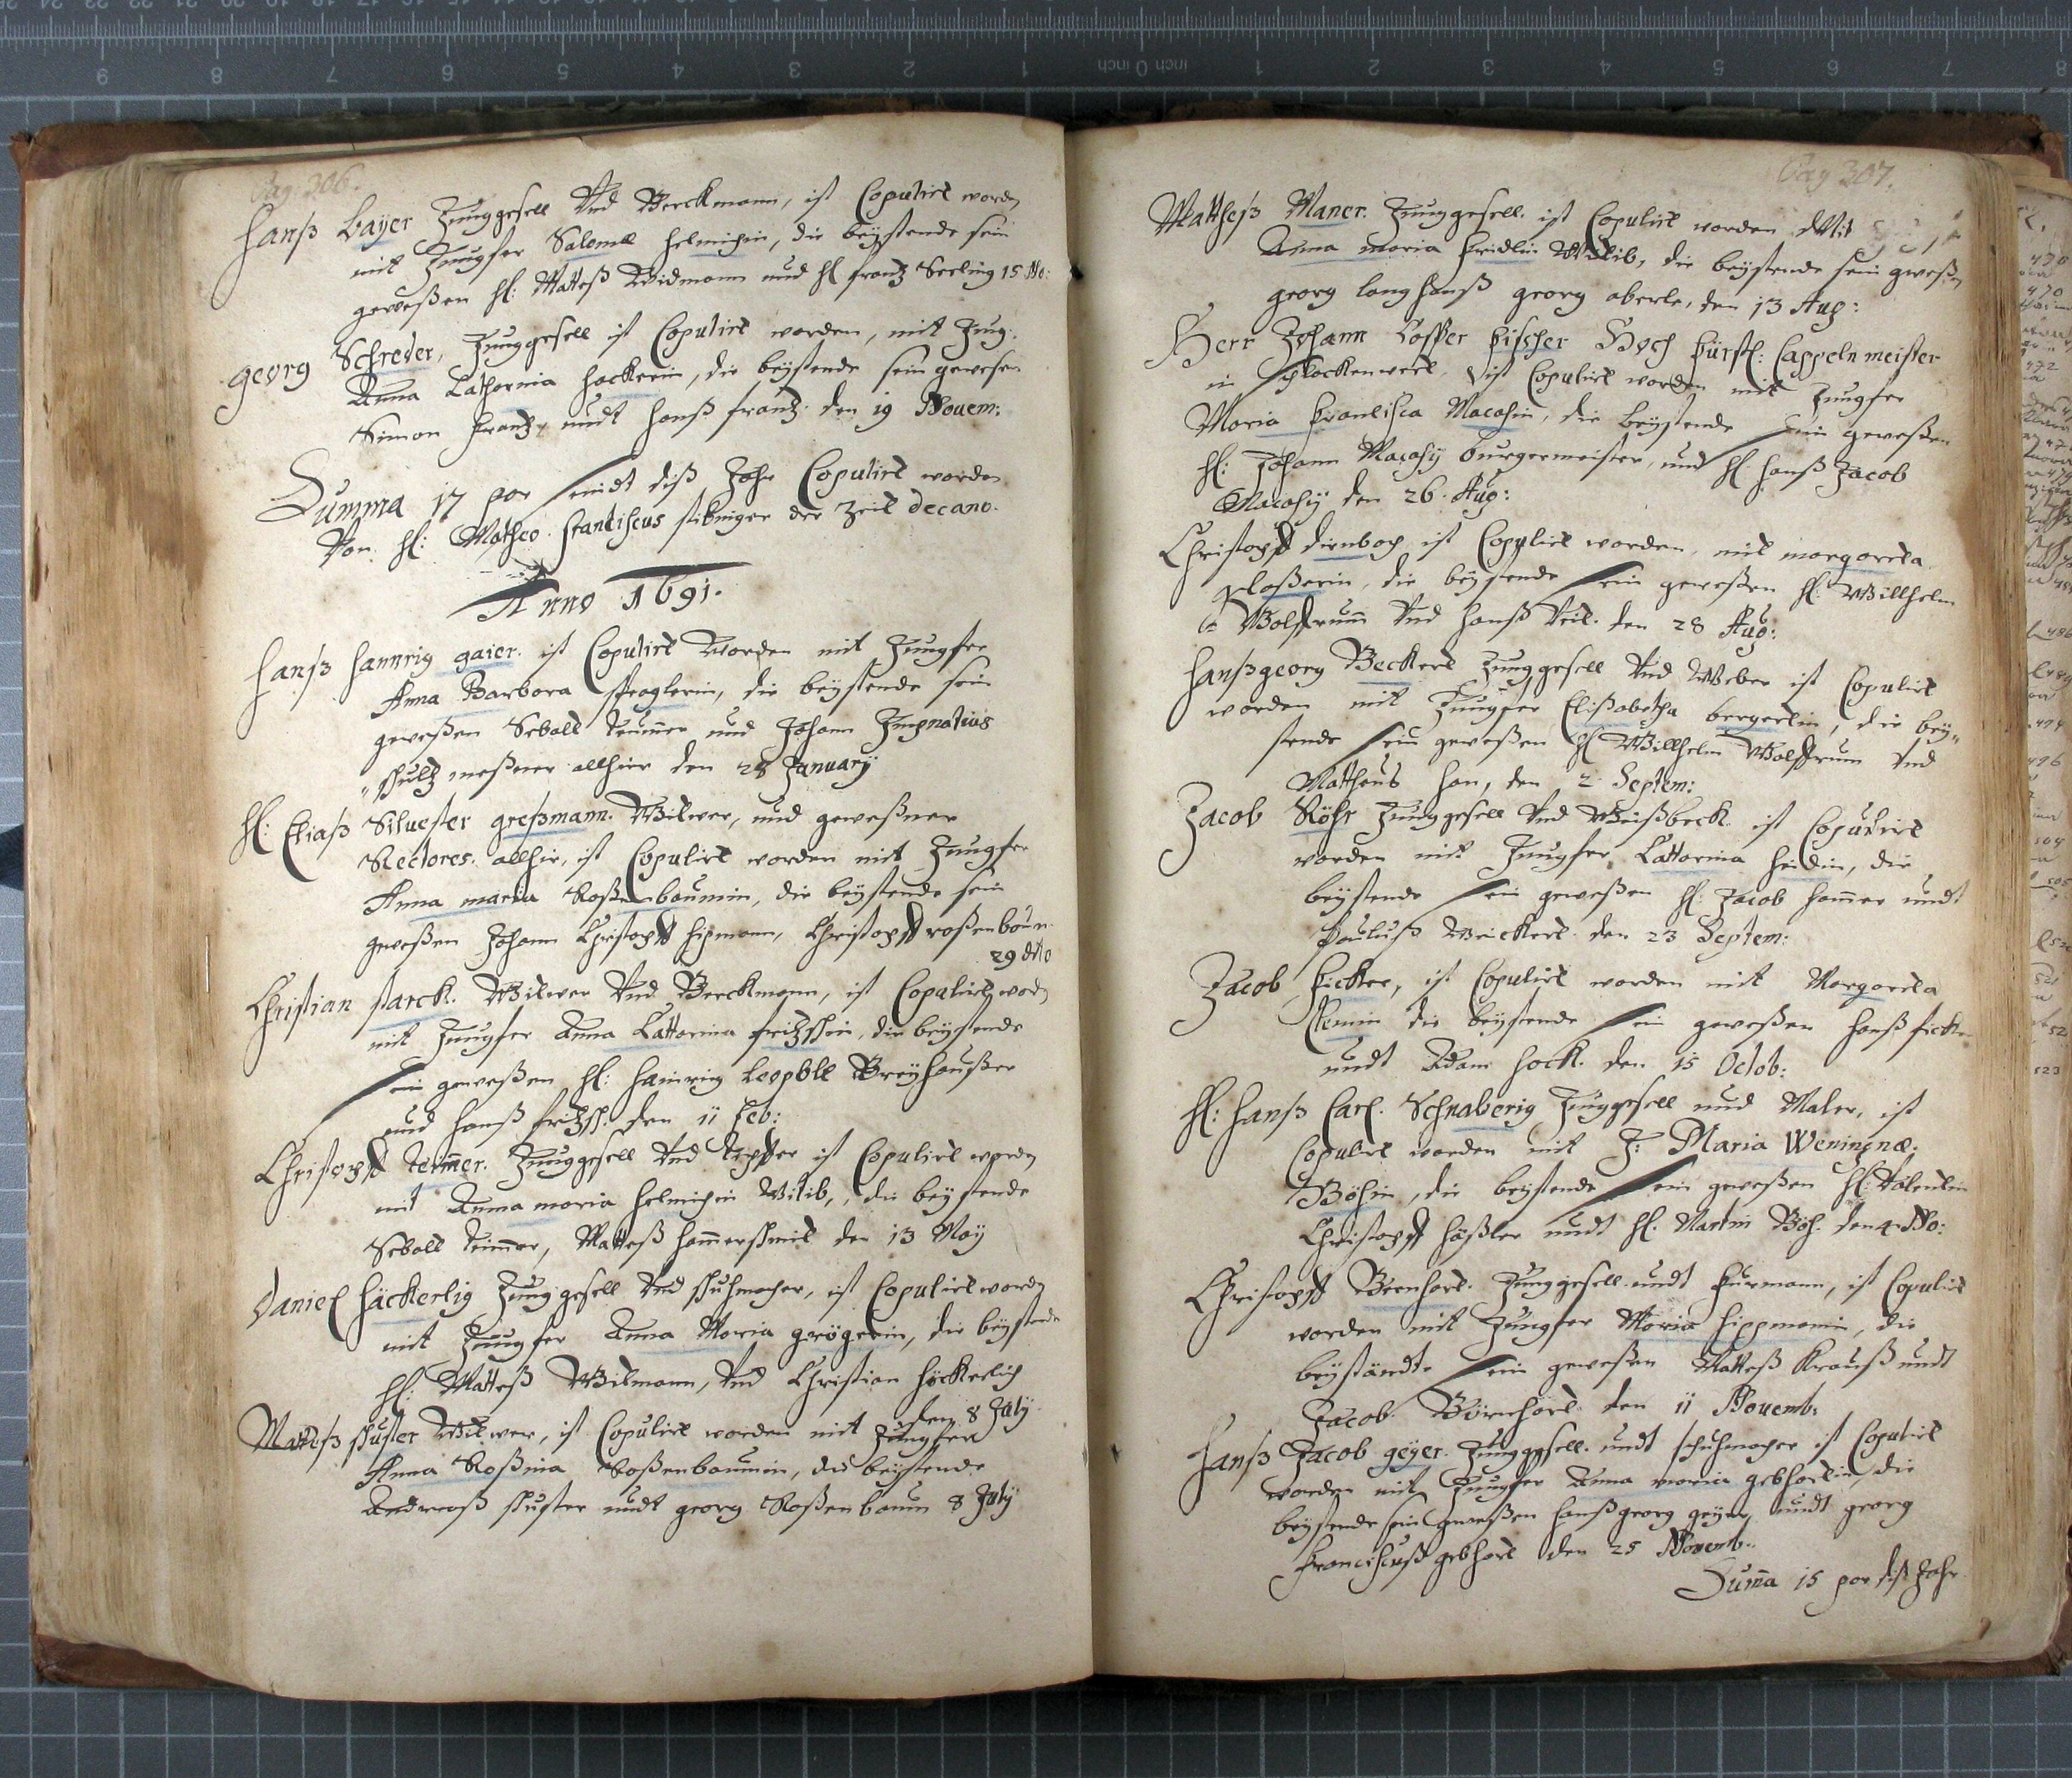 Pag: 306.
Hanß Bayer Junggesell Vnd Berckmann, ist Copulirt worden
mit Jungfer Salome Helmichin, die beÿstende sein
geweßen H: Matteß Widmann und H frantz Seeling 15 No:
Georg Schreder, Junggesell ist Copulirt worden, mit Jung:
Anna Catharina Hackerin, die beÿstende sein gewesen
Simon frantz, undt Hanß frantz den 19 Novem:
Summa 17 par seindt diß Jahr Copulirt worden
Von H: Matheo der Zeit decano.
Anno 1691.
Hanß Hannrig gaier. ist Copulirt Worden mit Jungfer
Anna Barbara sprglerin, die beÿstende sein
geweßen Sebalt teimer und Johann Jngnatius
schultz meßner allhier den 28 Januarÿ
H: Eliaß Siluester greßmann. Witwer, und geweßner
Rectores. allhir, ist Copulirt worden mit Jungfer
Anna maria Roßenbaumin, die beÿstende sein
geweßen Johann Christopff Hipmann, Christopff roßenbaum
29 dito
Christian starck. Witwer Vnd Berckmann, ist Copulirt wordn
mit Jungfer Anna Cattarina fritzschin, die beÿstende
sein geweßen H: Hainrig Leopolt Breÿhaußer
und Hanß fritzsch. den 11 feb:
Christopff teimer. Junggesell Vnd töpffer ist Copulirt worden
mit Anna maria Helmichin Witib, die beÿstende
Sebalt teimer, Matteß Hammerschmit den 13 Maÿ
Daniel Häckerlig Junggesell Vnd schuhmacher, ist Copulirt wordn
mit Jungfer Anna Maria grögerin, die beÿstende
H: Matteß Witmann, Vnd Christian Häckerlich
den 8 July
Matteß schuster Witwer, ist Copulirt worden mit Jungfer
Anna Roßina Roßenbaumin, die beÿstende
Andreaß schuster undt georg Roßenbaum 8 July
Pag 307.
Matheß Maner. Junggesell. ist Copulirt worden Mit
Anna maria Heidlin Wittib, die beÿstende sein gweßen
georg langhanß georg aberle, den 13 Aug:
Herr Johann Casper fischer Hoch fürstl: Cappelnmeister
in Schlackenwert, ist Copulirt worden mit Jungfer
Maria francisca Macasin, die beÿstende sein geweßen
H: Johann Macasÿ burgermeister, und H: Hanß Jacob
Macasÿ den 26. Aug:
Christopff dienbach ist Copulirt worden, mit margareta
gloßerin, die beÿstende sein geweßen H: Willhelm
Wolffrum Vnd Hanß Veit. den 28 Aug:
Hanßgeorg Beckert Junggesell Vnd Weber ist Copulirt
worden mit Jungfer Elißabetha bergertin, die beÿ„
stende sein geweßen H Willhelm Wolffrum Vnd
Matthaus Han, den 2 Septem:
Jacob Röhr Junggesell Vnd Weißbeck ist Copulirt
worden mit Jungfer Cattarina Heidin, die
beÿstende sein geweßen H: Jacob Hamer undt
Pauluß Weickert den 23 Septem:
Jacob fickter, ist Copulirt worden mit Margareta
die beÿstende sein geweßen Hanß
undt Adam Hock. den 15 Octob:
H: Hanß Carl. Schnaberig Junggesell und Maler, ist
Copulirt worden mit J: Maria
Böhin, die beÿstende sein geweßen H: Valentin
Christopff Häßler undt H: Martin Böh. den 4 No:
Christopff Bernhart. Junggesell undt furmann, ist Copulirt
worden mit Jungfer Maria Hippmanin, die
beÿständte sein geweßen Matteß Krauß undt
Jacob Bernhart den 11 Novemb:
Hanß Jacob geÿer. Junggesell. undt schuhmacher ist Copulirt
worden mit Jungfer Anna maria gebhartin, die
beÿstende sein geweßen Hanßgeorg geÿer undt georg
Franciscuß gebhart den 25 Novemb:
Suma 15 par diß Jahr